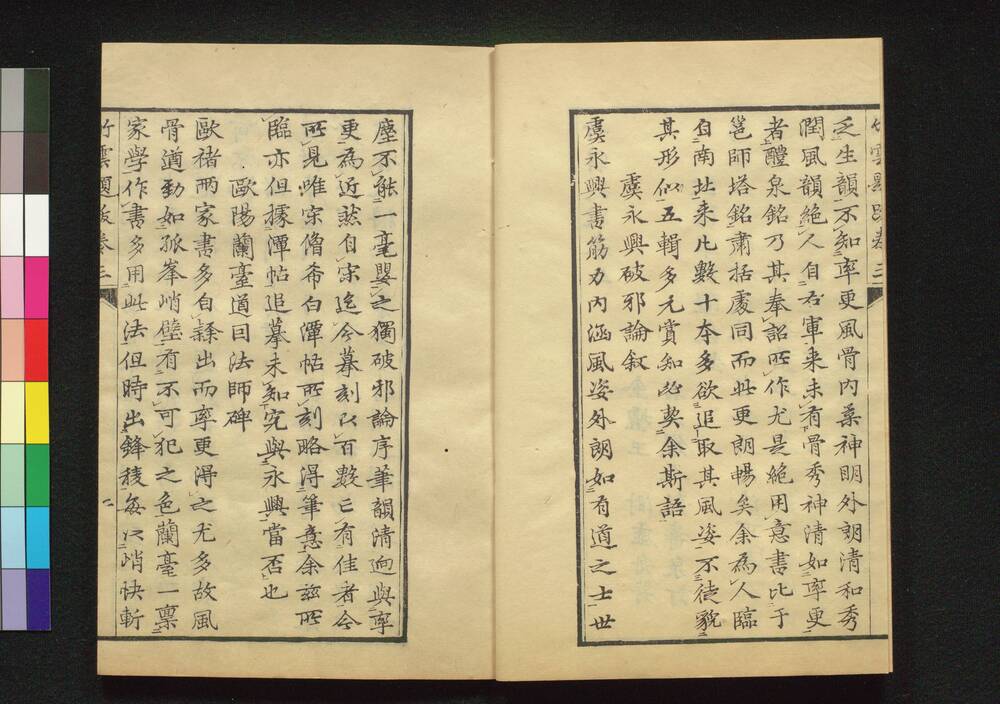 竹雲題跋卷三
乏生韻不知率更風骨內棄神明外朗清和秀
潤風韻絕人自右軍来未有骨秀神清如率更
者醴泉銘乃其奉詔所作尤是絕用意書比于
邕師塔銘肅括處同而此更朗暢矣余為人臨
自南北来凡數十本多欲追取其風姿不徒貌
其形似五輯多元賞知必契余斯語
虞永興破邪論叙
虞永興書筋力內涵風姿外朗如有道之士世
塵不能一毫嬰之獨破邪論序筆韻清逈與率
更為近然自宋迄今摹刻以百數已有佳者今
所見唯宋僧希白潭帖所刻略得筆意余兹所
臨亦但據潭帖追摹未知究與永興當否也
歐陽蘭臺道因法師碑
歐褚兩家書多自隸出而率更得之尤多故風
骨遒勁如孤峯峭壁有不可犯之色蘭臺一禀
家學作書多用此法但時出鋒稜每以峭快斬
竹雲題跋卷三 二